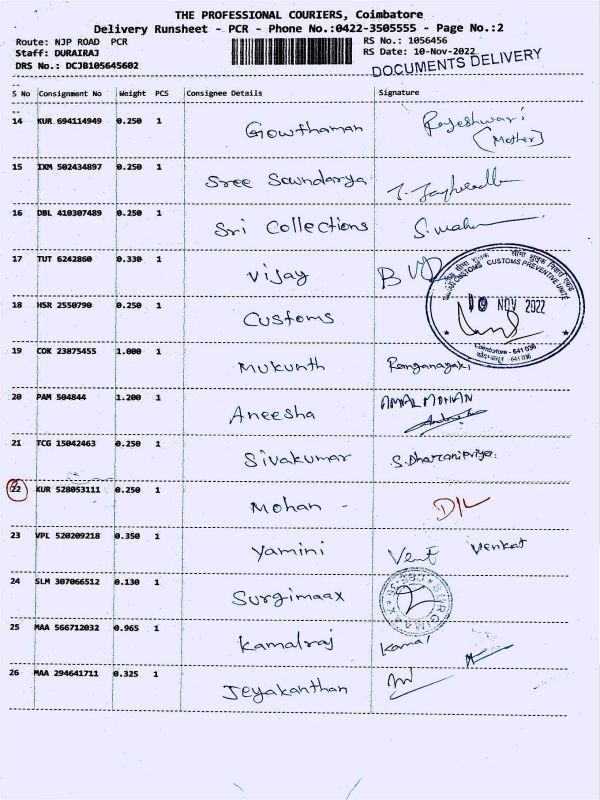 THE PROFESSIONAL COURIERS, Coimbatore
Delivery Runsheet - PCR - Phone No.:0422-3505555 - Page No.:2
Route: NJP ROAD PCR
Staff: DURAIRAJ
DRS No.: DCJB105645602
RS No.: 1056456
RS Date: 10-Nov-2022
DOCUMENTS DELIVERY
S No Consignment No Weight PCS Consignee Details Signature
14 KUR 694114949 0.250 1 Gowthaman Rajeshwari
(Mother)
15 IXM 502434897 0.250 1 Sree Soundarya
16 DBL 410307489 0.250 1 Sri Collections
17 TUT 6242860 0.330 1 Vijay
18 HSR 2550790 0.250 1 Customs
CUSTOMS PREVENTIVE UNIT
10 NOV 2022
Coimbatore - 641 036
19 COK 23875455 1.000 1 Mukunth Ranganayaki
20 PAM 504844 1.200 1 Aneesha
21 TCG 15042463 0.250 1 Sivakumar S. Dharanipriya.
22 KUR 528053111 0.250 1 Mohan - D/L
23 VPL 520209218 0.350 1 Yamini Venkat
24 SLM 307066512 0.130 1 Surgimaax
SURGIMAAX
25 MAA 566712032 0.965 1 Kamalraj Kamal
26 MAA 294641711 0.325 1 Jeyakanthan